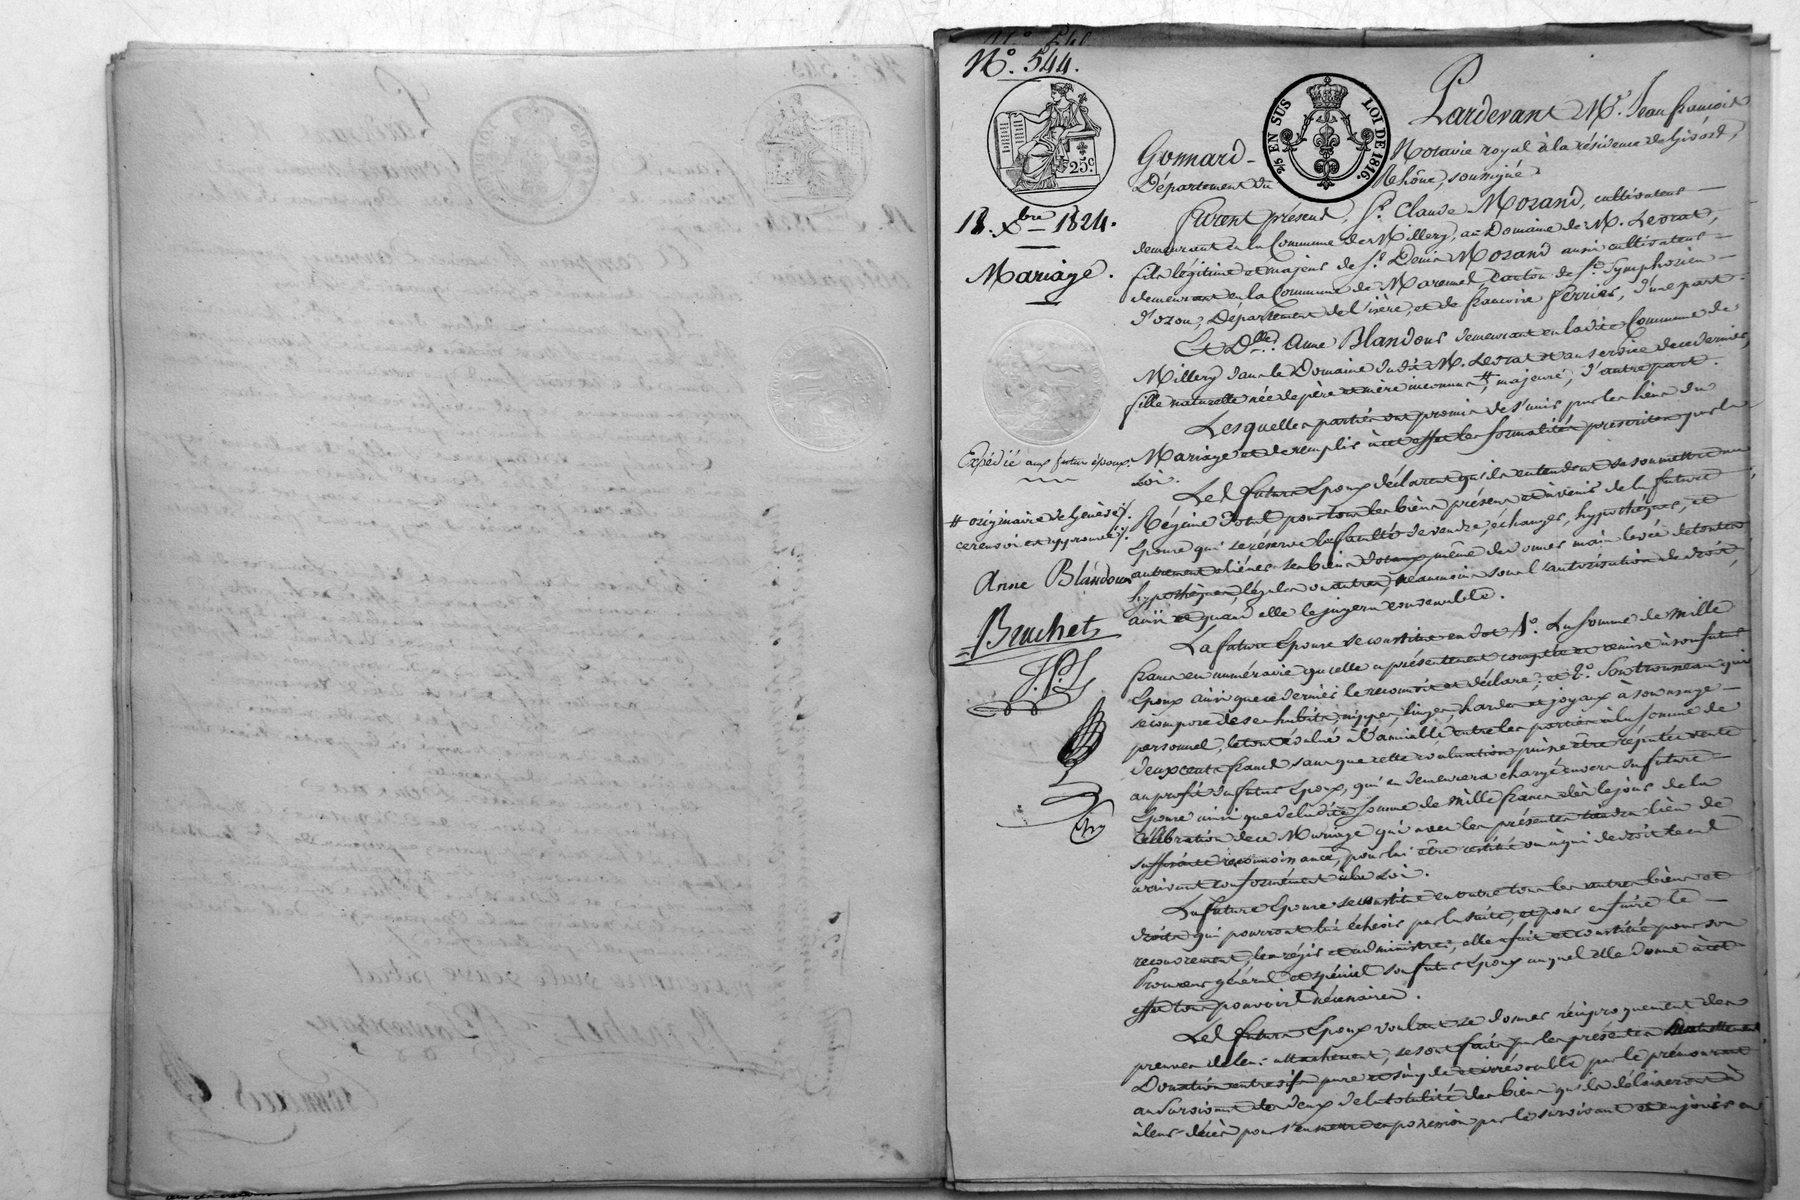 N.º 544.
25.c
2/5 EN SUS
LOI DE 1816.
18. Xbre 1824.
Mariage.
Expédié aux futurs époux.
# originaire de Genève ;
ce renvoi est approuvé ;
Anne Blandour
Bruchet
J.P.L
Pardevant Me. Jean françois
Gonnard - Notaire royal à la résidence de Givord,
Département du Rhône, soussigné
furent présens, Sr. Claude Morand, cultivateur
demeurant en la Commune de Millery, au Domaine de M. Levrat,
fils légitime et majeur de Sr. Denis Morand aussi cultivateur
demeurant en la Commune de Marennes, Canton de St. Symphorien
d'ozon, Département de l'isère, et de francoise ferrier, d'une part.
Et Dlle. Anne Blandour demeurant en ladite Commune de
Millery dans le Domaine dudit M. Levrat et au service de ce dernier,
fille naturelle née de père et mère inconnus #, majeure, d'autre part.
Lesquelles parties ont promis de s'unir par les liens du
Mariage et de remplir à cet effet les formalités prescrites par la
Loi.
Lesd. futurs Epoux déclarent qu'ils entendent se soumettre au
Régime dotal pour tous les biens présens et à venir de la future
Epouse qui se réserve la faculté de vendre, échanger, hypothéquer, et
autrement aliéner ses biens dotaux même de donner main levée de toutes
hypothèques légales ou autres, néanmoins sous l'autorisation de droit,
ainsi et quand elle le jugera convenable.
La future Epouse se constitue en dot 1º. La somme de mille
francs en numéraire qu'elle a présentement comptée et remise à son futur
Epoux ainsi que ce dernier le reconnoit et déclare ; et 2º. Son trousseau qui
se compose de ses habits, nippes, linges, hardes et joyaux à son usage
personnel, le tout évalué à l'amiable entre les parties à la somme de
deux cents francs sans que cette évaluation puisse être réputée vente
au profit du futur Epoux, qui en demeurera chargé envers sa future
Epouse ainsi que de ladite somme de mille francs dès le jour de la
célébration de ce Mariage qui avec les présentes tiendra lieu de
suffisante reconnoissance, pour lui être restitué ou à qui de droit le cas
arrivant conformément à la Loi.
La future Epouse se constitue en outre tous les autres biens et
droits qui pourront lui échoir par la suite, et pour en faire le
recouvrement, les régir et administrer, elle a fait et constitué pour son
Procureur général et spécial son futur Epoux auquel elle donne à cet
effet tous pouvoirs nécessaires.
Lesd. futurs Epoux voulant se donner réciproquement des
preuves de leur attachement, se sont faits par les présentes
Donation entre vifs pure et simple et irrévocable par le prémourant
au survivant des deux de la totalité des biens qu'ils délaisseront à
à leur décès pour s'en mettre en possession par le survivant et en jouir en